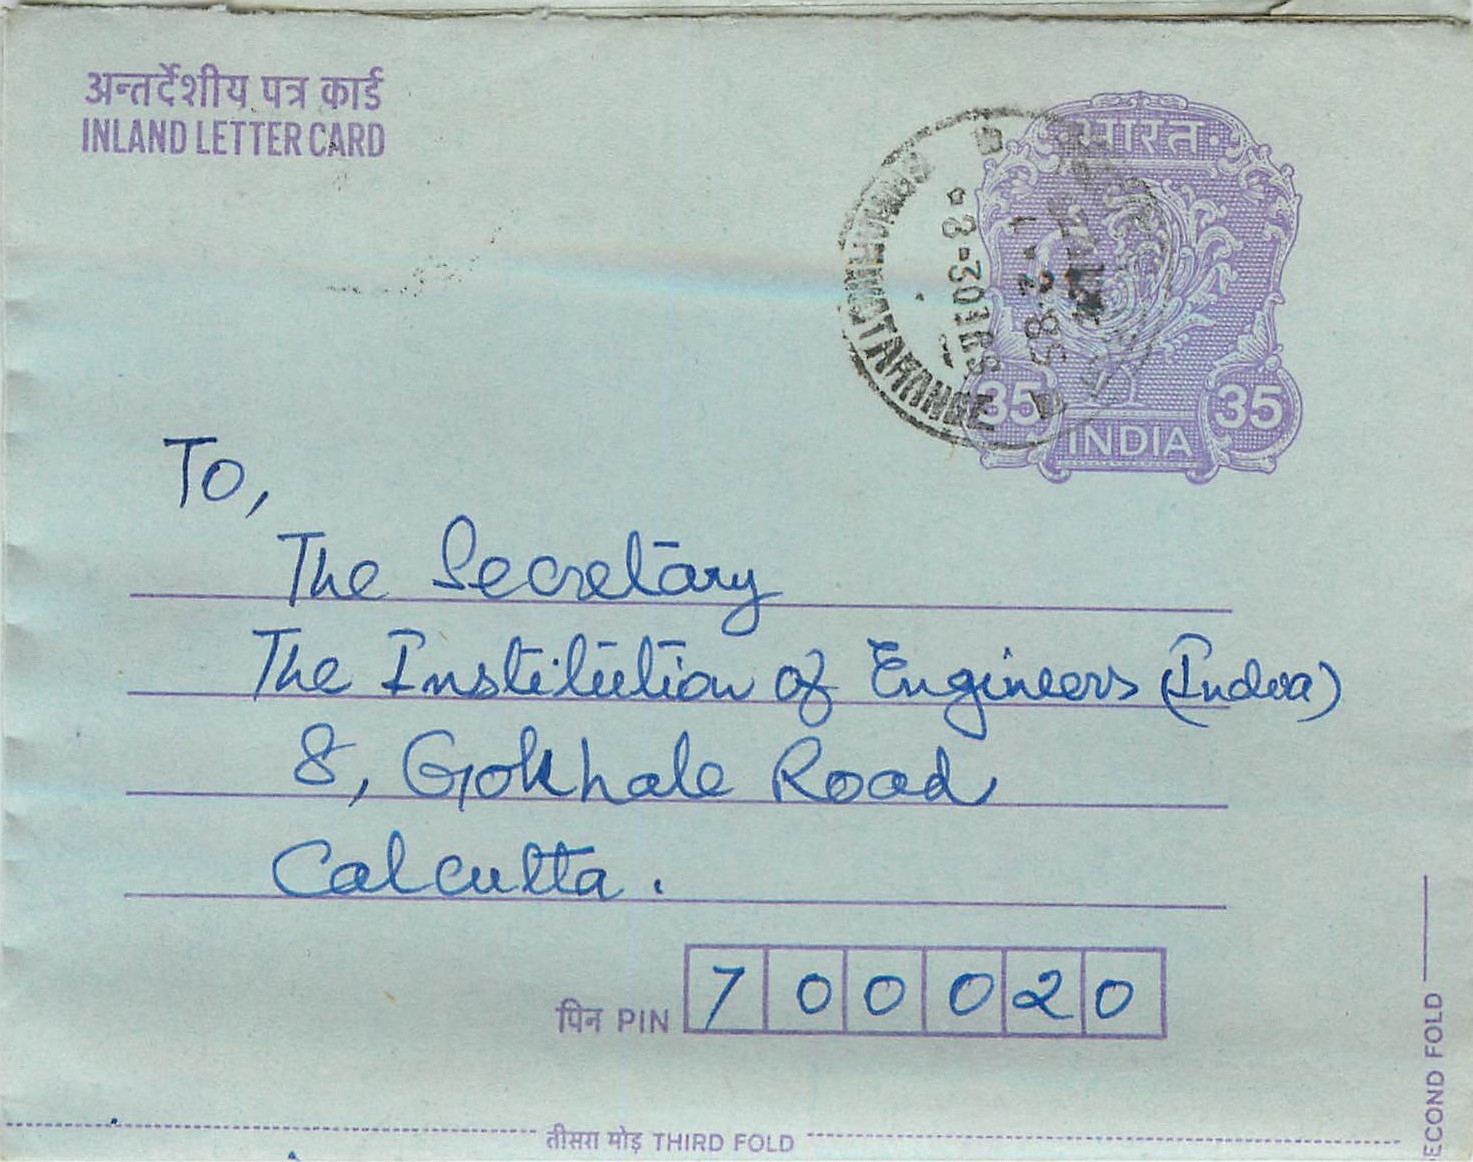 अन्तर्देशीय पत्र कार्ड
INLAND LETTER CARD
भारत
35 35
INDIA
To,
The Secretary
The Institution of Engineers (India)
8, Gokhale Road
Calcutta.
पिन PIN 700020
तीसरा मोड़ THIRD FOLD
ECOND FOLD